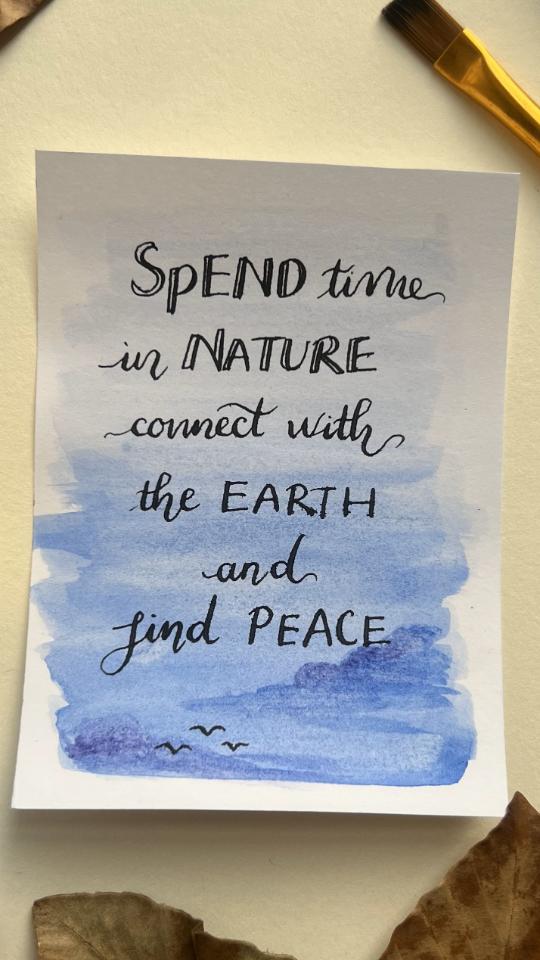 SpEND time
in NATURE
connect with
the EARTH
and
find PEACE